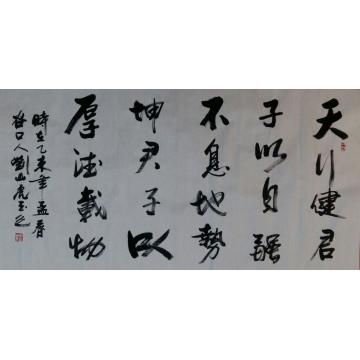 天行健君
子以自强
不息地势
坤君子以
厚德載物
時在乙未年孟春
谷口人劉山虎書